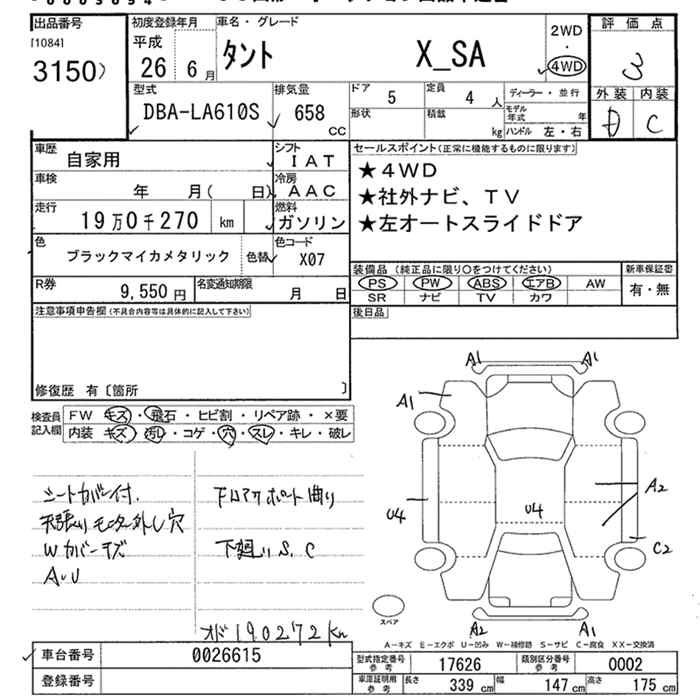 出品番号
[1084]
3150
初度登録年月
平成
26 6月
車名・グレード
タント X_SA
2WD
・
4WD
評価点
3
外装 内装
D C
型式
DBA-LA610S
排気量
658
CC
ドア 5 定員 4 人
形状 積載 kg
ディーラー・並行
モデル年式 年
ハンドル 左・右
車歴 自家用
シフト IAT
車検 年 月( 日)
冷房 AAC
走行 19万0千270 km
燃料 ガソリン
色 ブラックマイカメタリック 色替
色コード X07
R券 9,550円
名変通知期限 月 日
セールスポイント(正常に機能するものに限ります)
★4WD
★社外ナビ、TV
★左オートスライドドア
装備品(純正品に限り○をつけてください)
PS PW ABS エアB AW
SR ナビ TV カワ
新車保証書
有・無
後日品
注意事項申告欄(不具合内容等は具体的に記入して下さい)
修復歴 有〔箇所 〕
検査員記入欄
FW キズ・飛石・ヒビ割・リペア跡・×要
内装 キズ・汚レ・コゲ・穴・スレ・キレ・破レ
シートカバー付.
天張りモニター外し穴
Wカバーキズ
A・U
下廻りS.C
オド190272Km
A1 A1
A1
U4
U4
A2
C2
A2 A1
スペア
A-キズ E-エクボ U-凹み W-補修跡 S-サビ C-腐食 XX-交換済
車台番号 0026615
登録番号
型式指定番号参考 17626
類別区分番号参考 0002
車庫証明用参考 長さ 339cm 幅 147cm 高さ 175cm